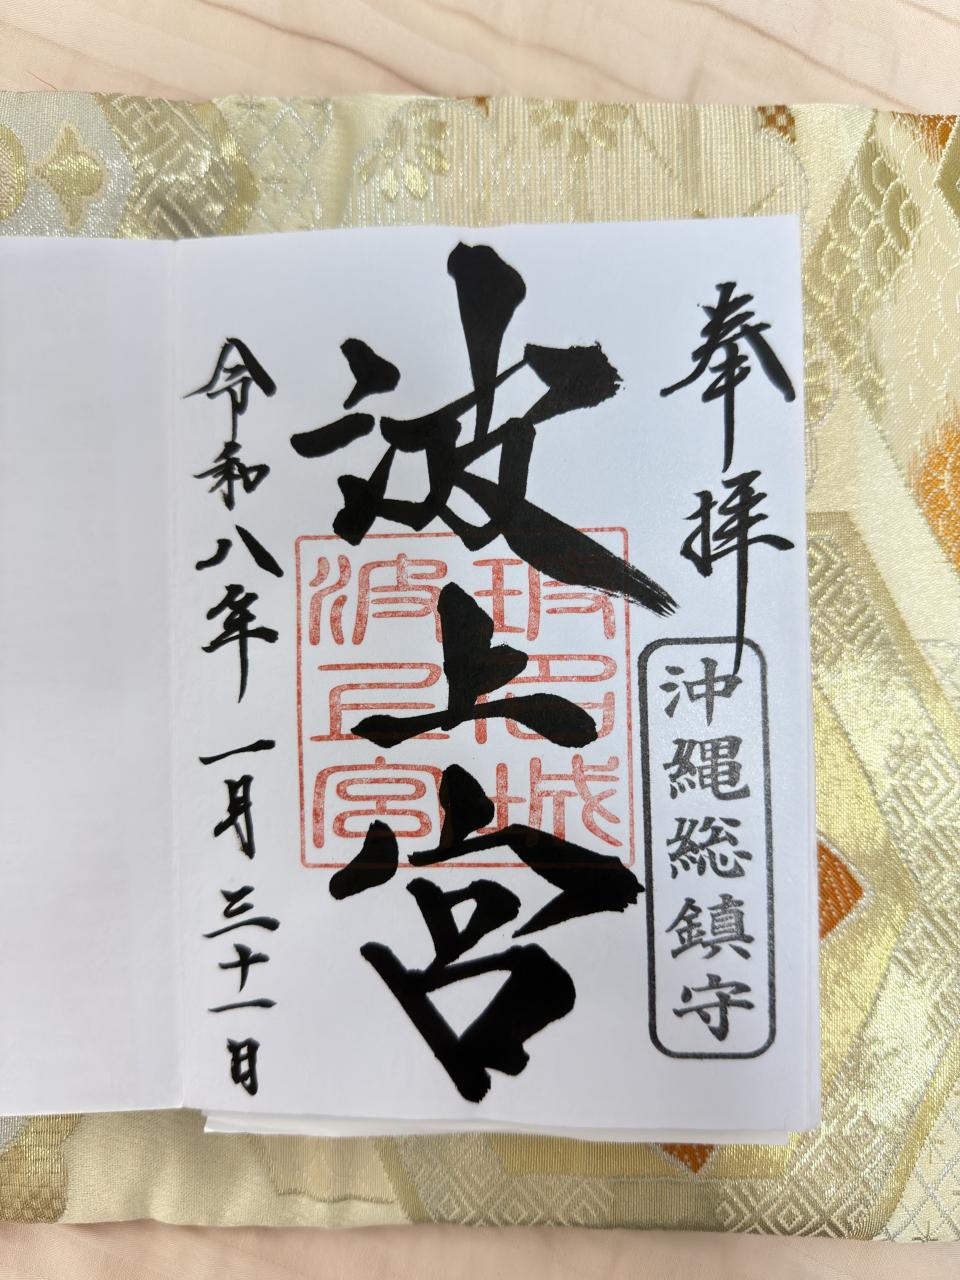 奉拝
沖縄総鎮守
波上宮
坡名城
波上宮
令和八年一月三十一日